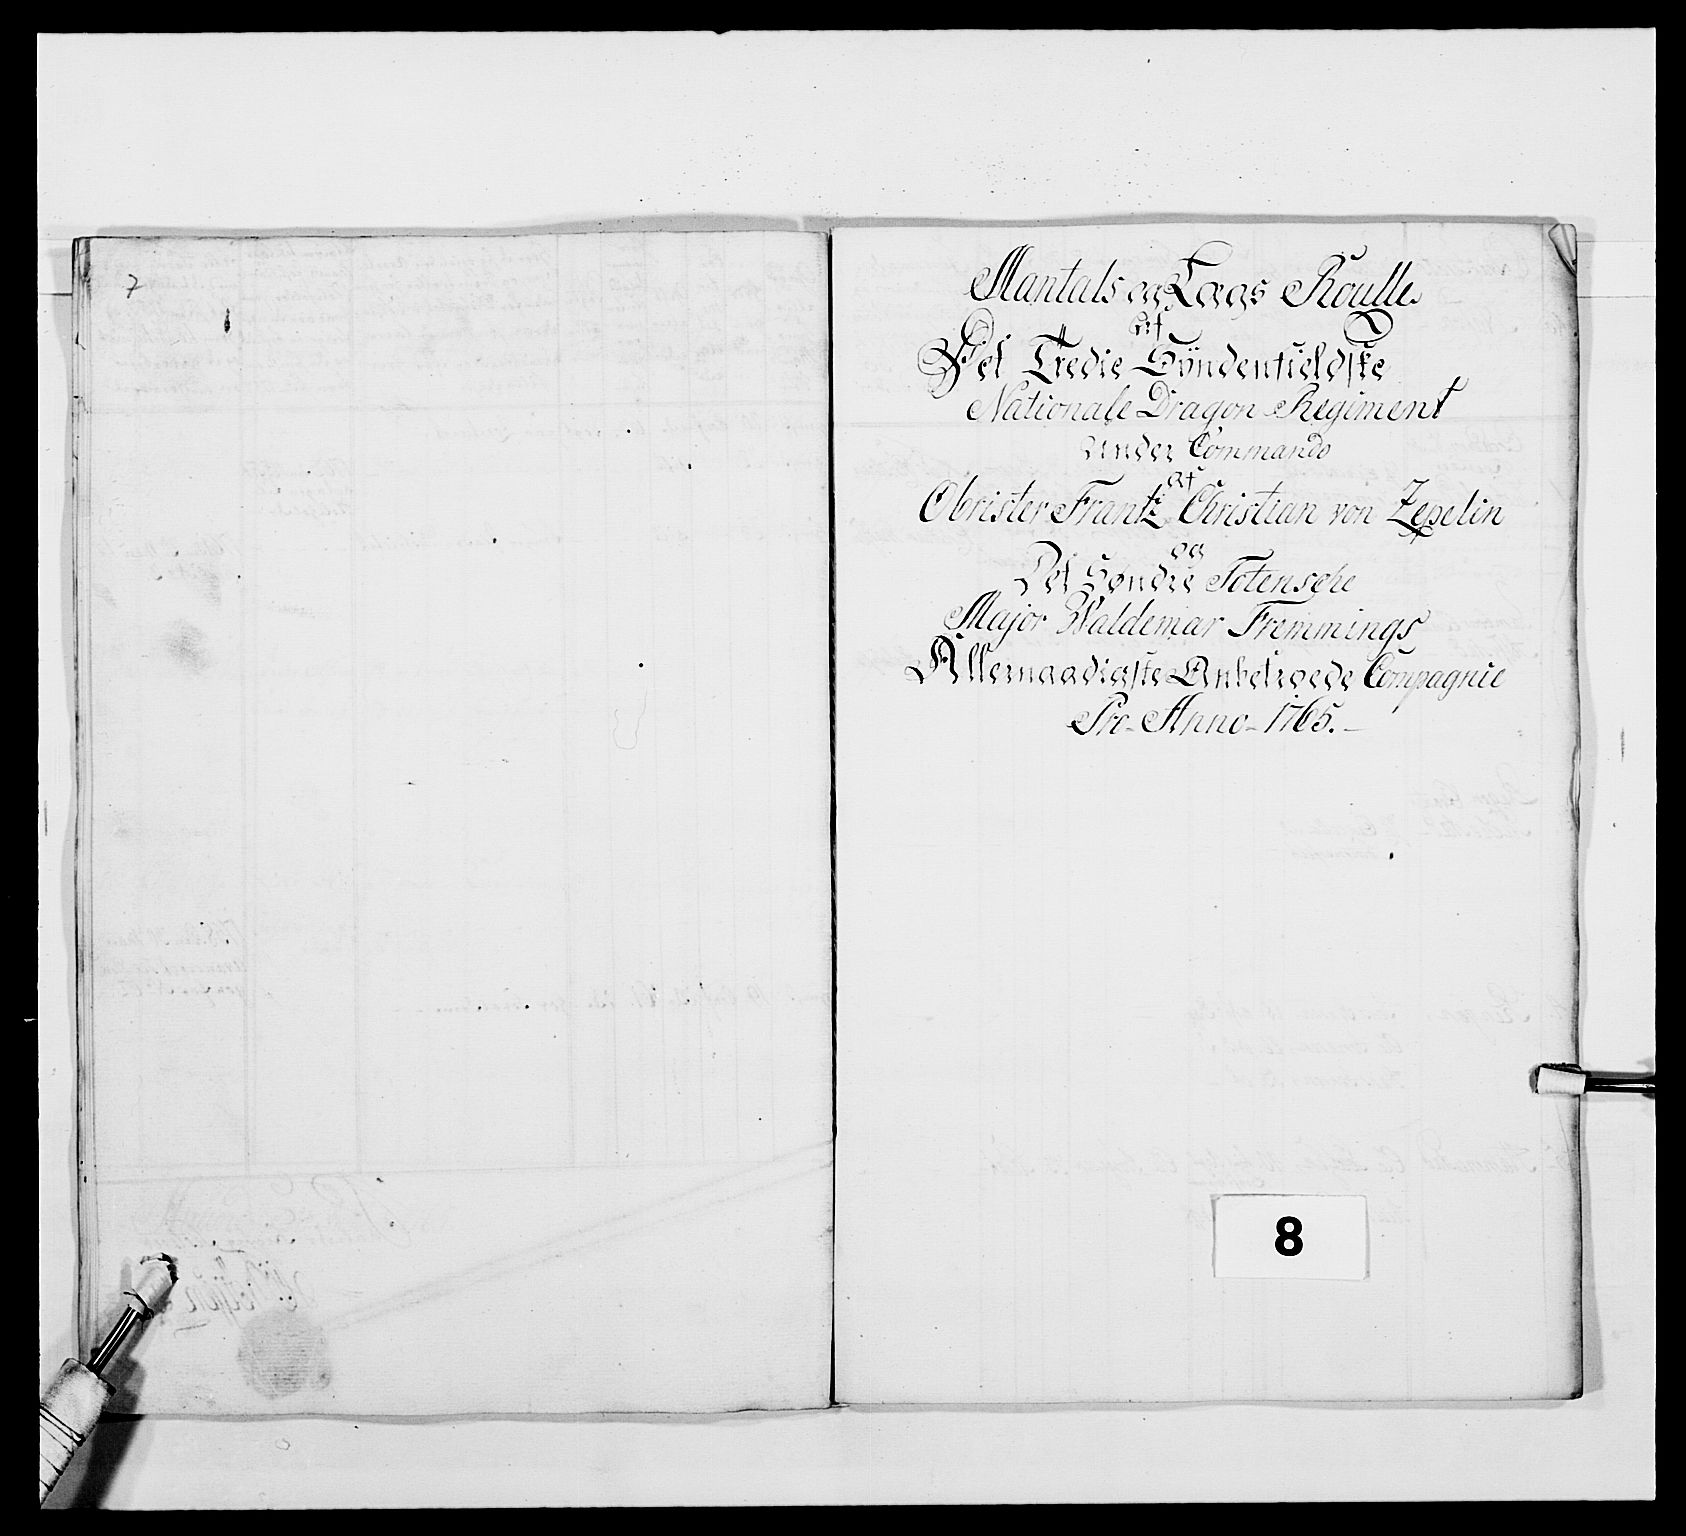 7
Mantals og Lægs Roulle
Af
Det Tredie Syndenfieldske
Nationale Dragon Regiment
Under Commando
Af
Obrister Frantz Christian von Zepelin
og
Det Søndre Totensche
Major Waldemar Fremmings
Allernaadigste Anbetroede Compagnie
Pro Anno 1765.
8